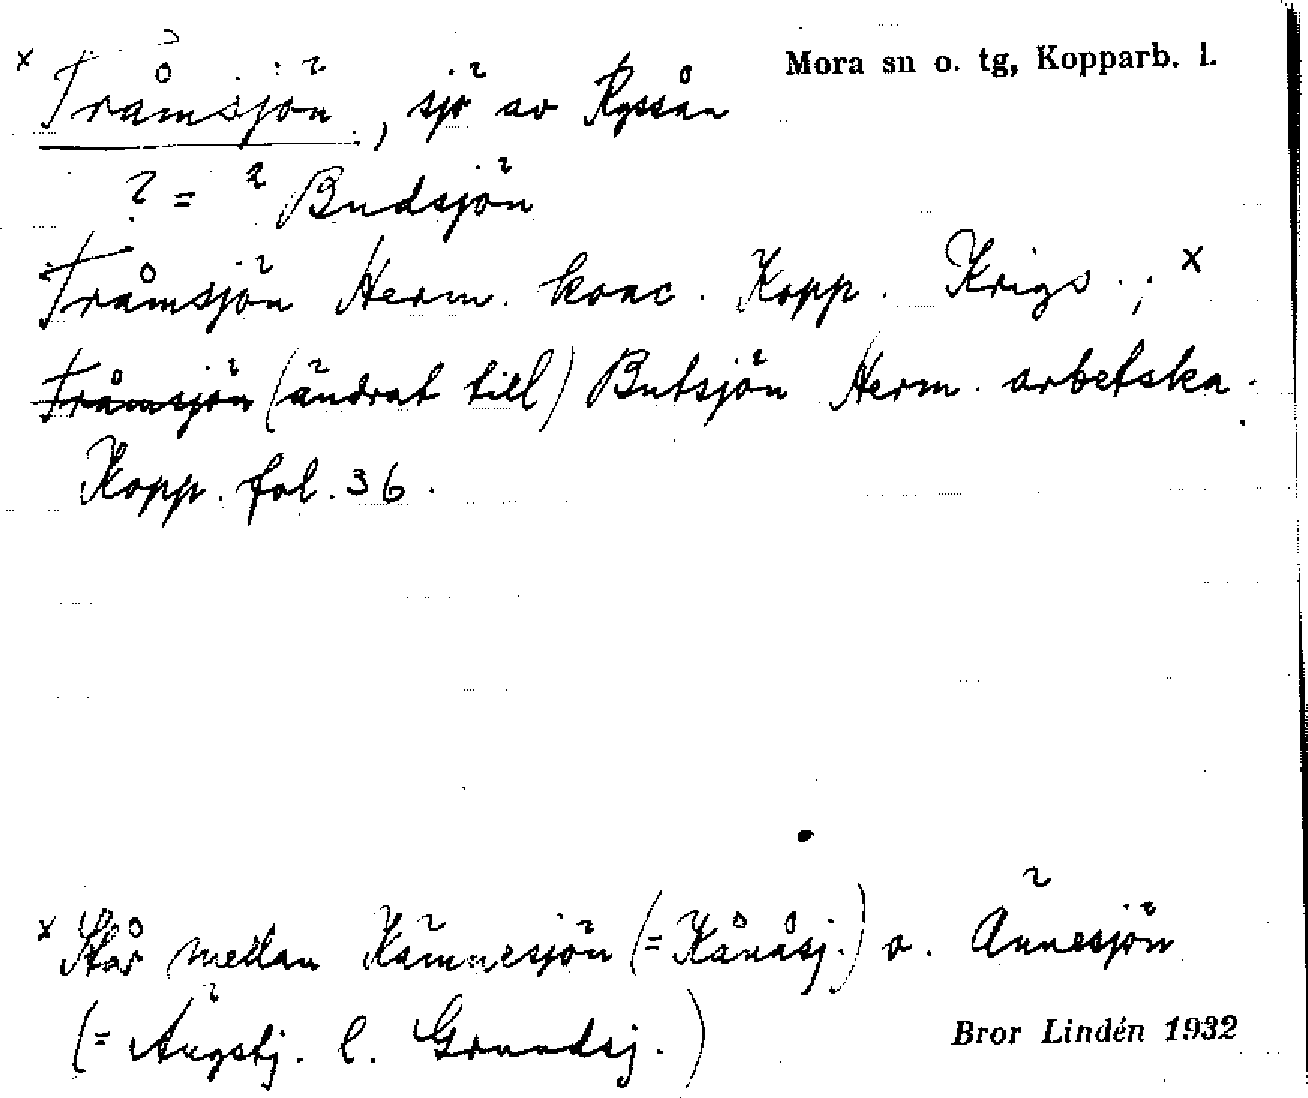 x Tråmsjön, sjö av Ryssån
Mora sn o. tg, Kopparb. l.
? = ? Budsjön
Tråmsjön Herm. konc. Kopp. Krigs.; x
Tråmsjön (ändrat till) Butsjön Herm. arbetska.
Kopp. fol. 36.
x Står mellan Kämnesjön (= Kånåsj.) o. Ännesjön
(= Ängstj. l. Grundsj.)
Bror Lindén 1932